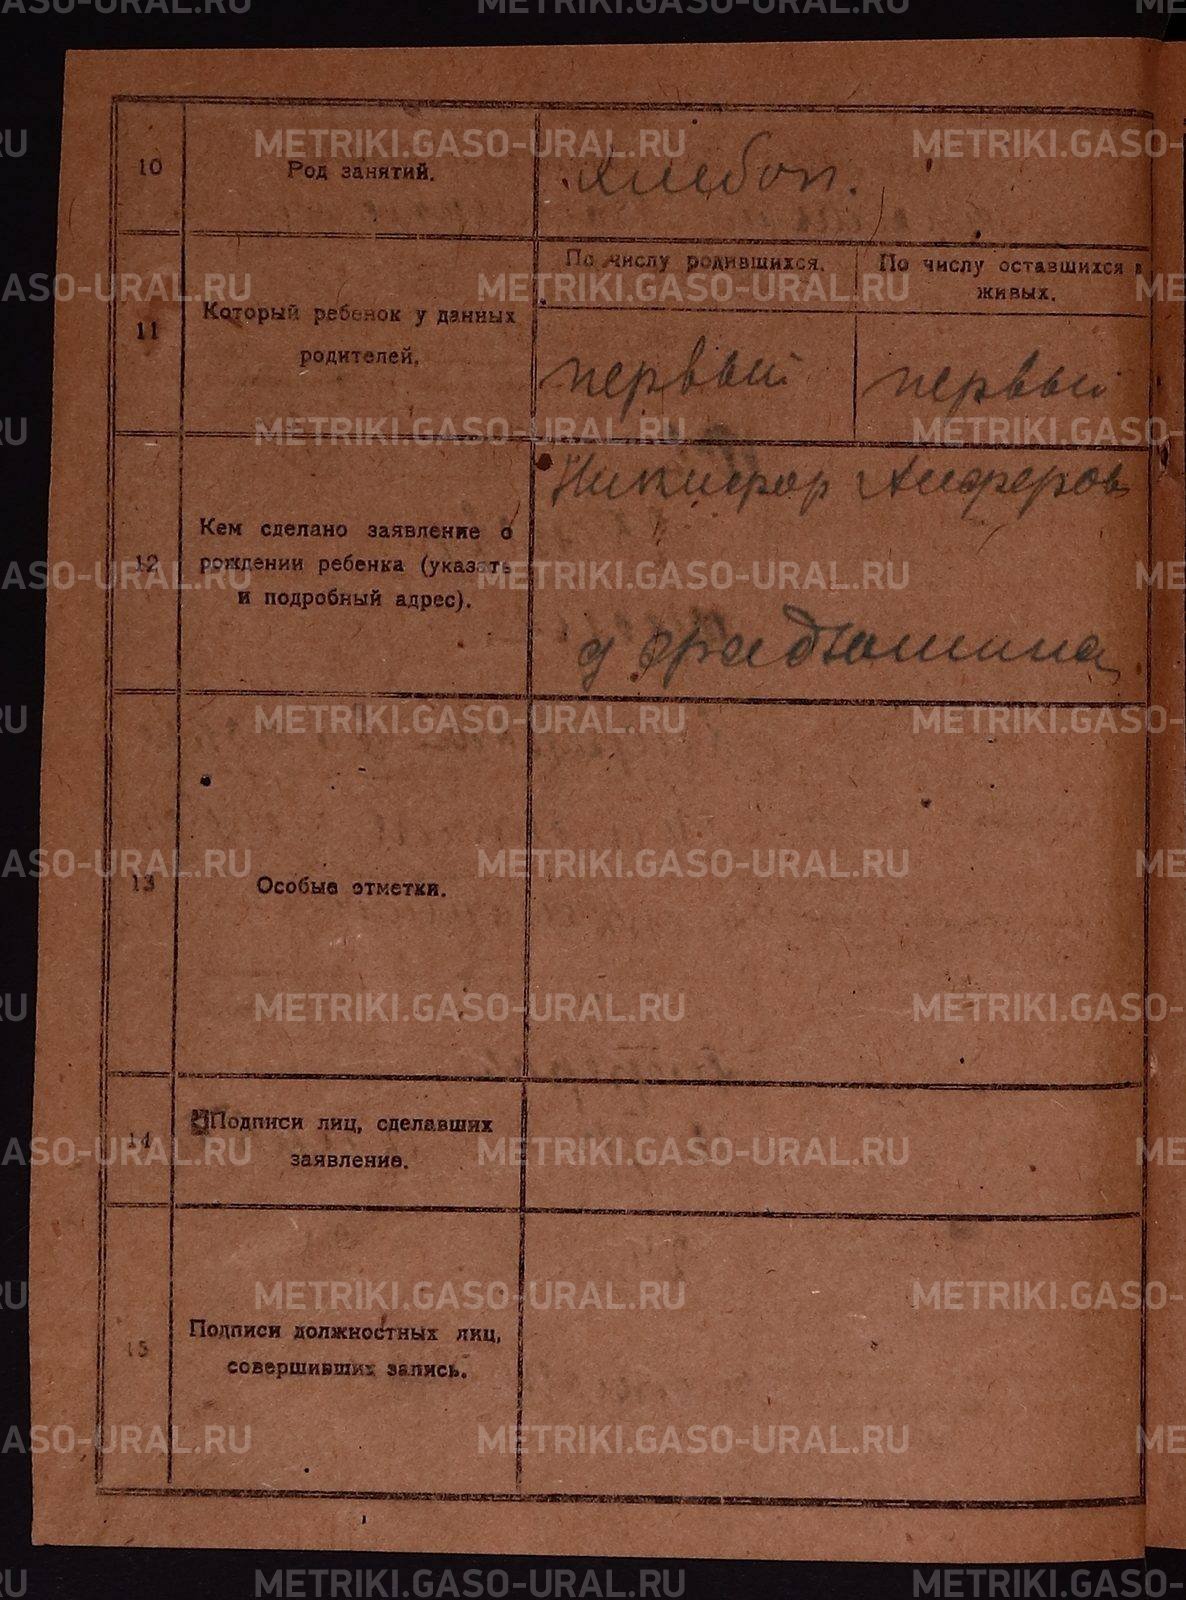 10
Род занятий.
Хлебоп.
11
Который ребенок у данных
родителей.
По числу родившихся.
По числу оставшихся в
живых.
первый
первый
12
Кем сделано заявление о
рождении ребенка (указать
и подробный адрес).
Никифор Алферов
д
13
Особые отметки.
14
Подписи лиц, сделавших
заявление.
15
Подписи должностных лиц,
совершивших запись.
METRIKI.GASO-URAL.RU